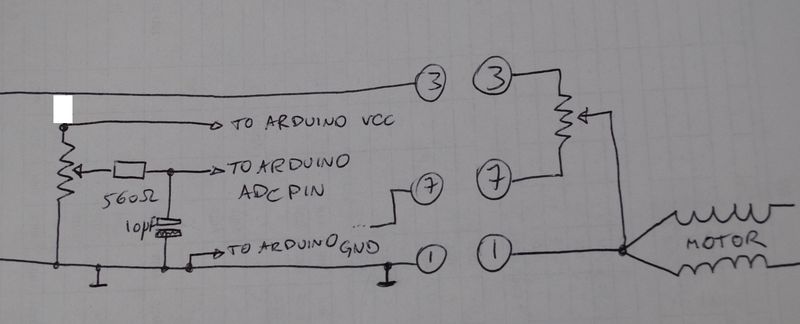 3 3
TO ARDUINO VCC
TO ARDUINO
ADC PIN
560Ω
10µF
7 7
TO ARDUINO GND
1 1
MOTOR